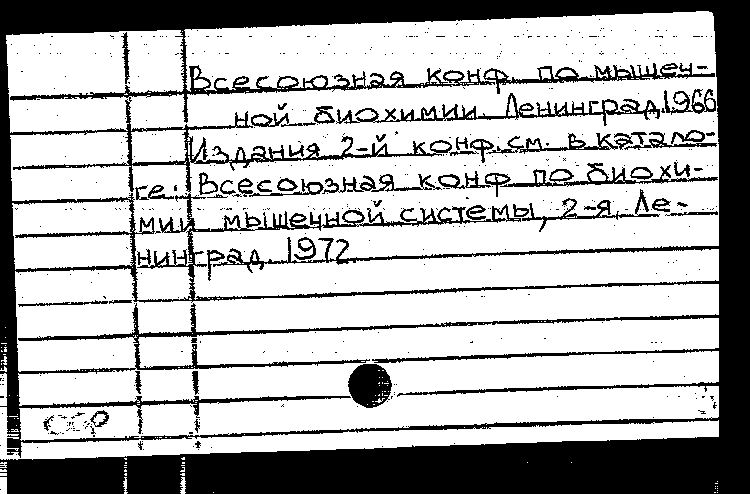 Всесоюзная конф. по мышеч-
ной биохимии. Ленинград, 1966
Издания 2-й конф. см. в катало-
ге: Всесоюзная конф по биохи-
мии мышечной системы, 2-я, Ле-
нинград. 1972.